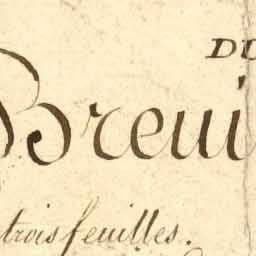 DU
Breui
trois feuilles.